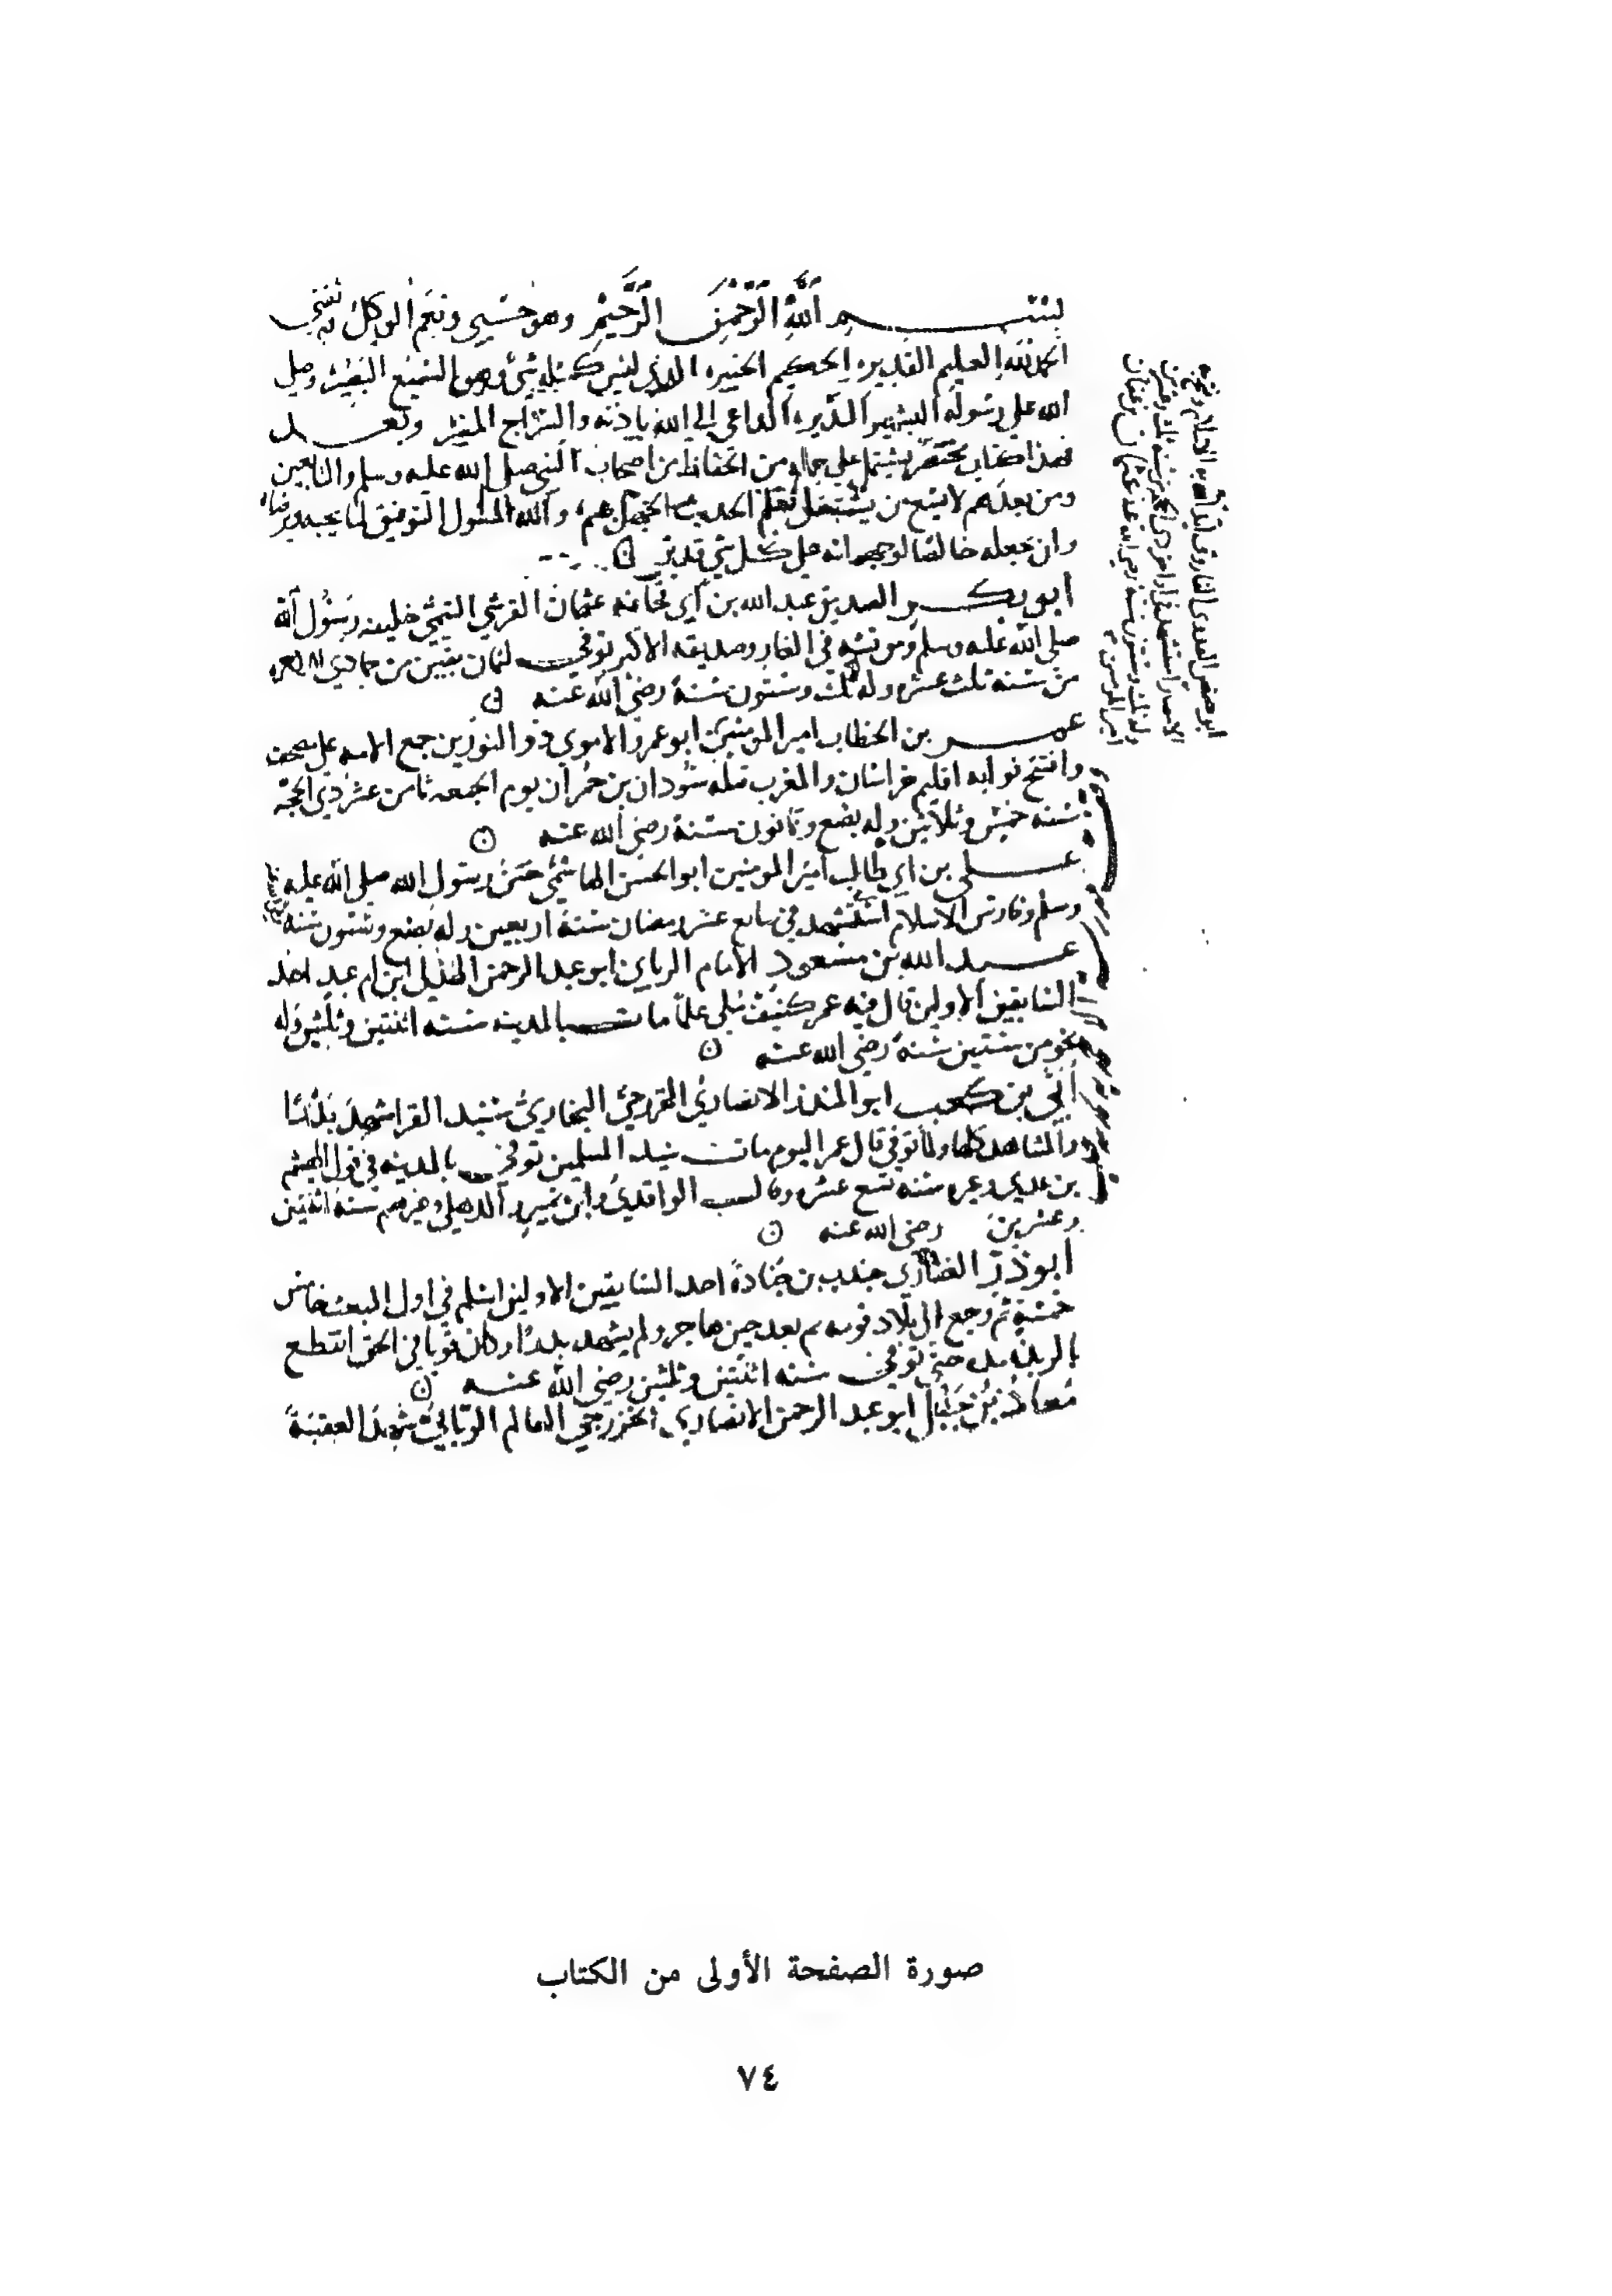 بسم الله الرحمن الرحيم وهو حسبي ونعم الوكيل به ثقتي
الحمد لله العليم القدير الحكيم الخبير الذي ليس كمثله شيء وهو السميع البصير وصلى
الله على رسوله البشير النذير الداعي الى الله باذنه والسراج المنير وبعد
فهذا كتاب مختصر يشتمل على جملة من الحفاظ من اصحاب النبي صلى الله عليه وسلم والتابعين
ومن بعدهم لا يسع من يشتغل بعلم الحديث الجهل بهم والله المسئول التوفيق لما يحبه ويرضاه
وان يجعله خالصا لوجهه انه على كل شي قدير
ابو بكر الصديق عبد الله بن ابي قحافه عثمان القرشي التيمي خليفه رسول الله
صلى الله عليه وسلم ومونسه في الغار وصديقه الاكبر توفي لثمان بقين من جمادى الاخره
من سنه ثلث عشره وله ثلث وستون سنة رضي الله عنه
عمر بن الخطاب امير المومنين ابو عمرو الاموي ذو النورين جمع الامه على مصحف
وافتتح نوابه اقليم خراسان والمغرب قتله سودان بن حمران يوم الجمعه ثامن عشر ذي الحجة
سنه خمس وثلاثين وله بضع وثمانون سنة رضي الله عنه
علي بن ابي طالب امير المومنين ابو الحسن الهاشمي ختن رسول الله صلى الله عليه
وسلم وفارس الاسلام استشهد في سابع عشر رمضان سنة اربعين وله بضع وستون سنة
عبد الله بن مسعود الامام الرباني ابو عبد الرحمن الهذلي ابن ام عبد احد
السابقين الاولين قال فيه عمر كنيف ملي علما مات بالمدينه سنه اثنتين وثلثين وله
نحو من ستين سنة رضي الله عنه
أبي بن كعب ابو المنذر الانصاري الخزرجي النجاري سيد القرا شهد بدرا
والمشاهد كلها ولما توفي قال عمر اليوم مات سيد المسلمين توفي بالمدينه في قول الهيثم
بن عدي وغيره سنه تسع عشره وقال الواقدي وابن نمير والذهلي وغيرهم سنة اثنتين
وعشرين رضي الله عنه
أبو ذر الغفاري جندب بن جنادة احد السابقين الاولين اسلم في اول المبعث خامس
خمسة ثم رجع الى بلاد قومه ثم بعد حين هاجر ولم يشهد بدرا وكان قوالا في الحق انقطع
بالربذه حتى توفي سنه اثنتين وثلثين رضي الله عنه
معاذ بن جبل ابو عبد الرحمن الانصاري الخزرجي العالم الرباني شهد العقبة
ابو حفص العدوي الفاروق
امير المومنين
صورة الصفحة الأولى من الكتاب
٧٤